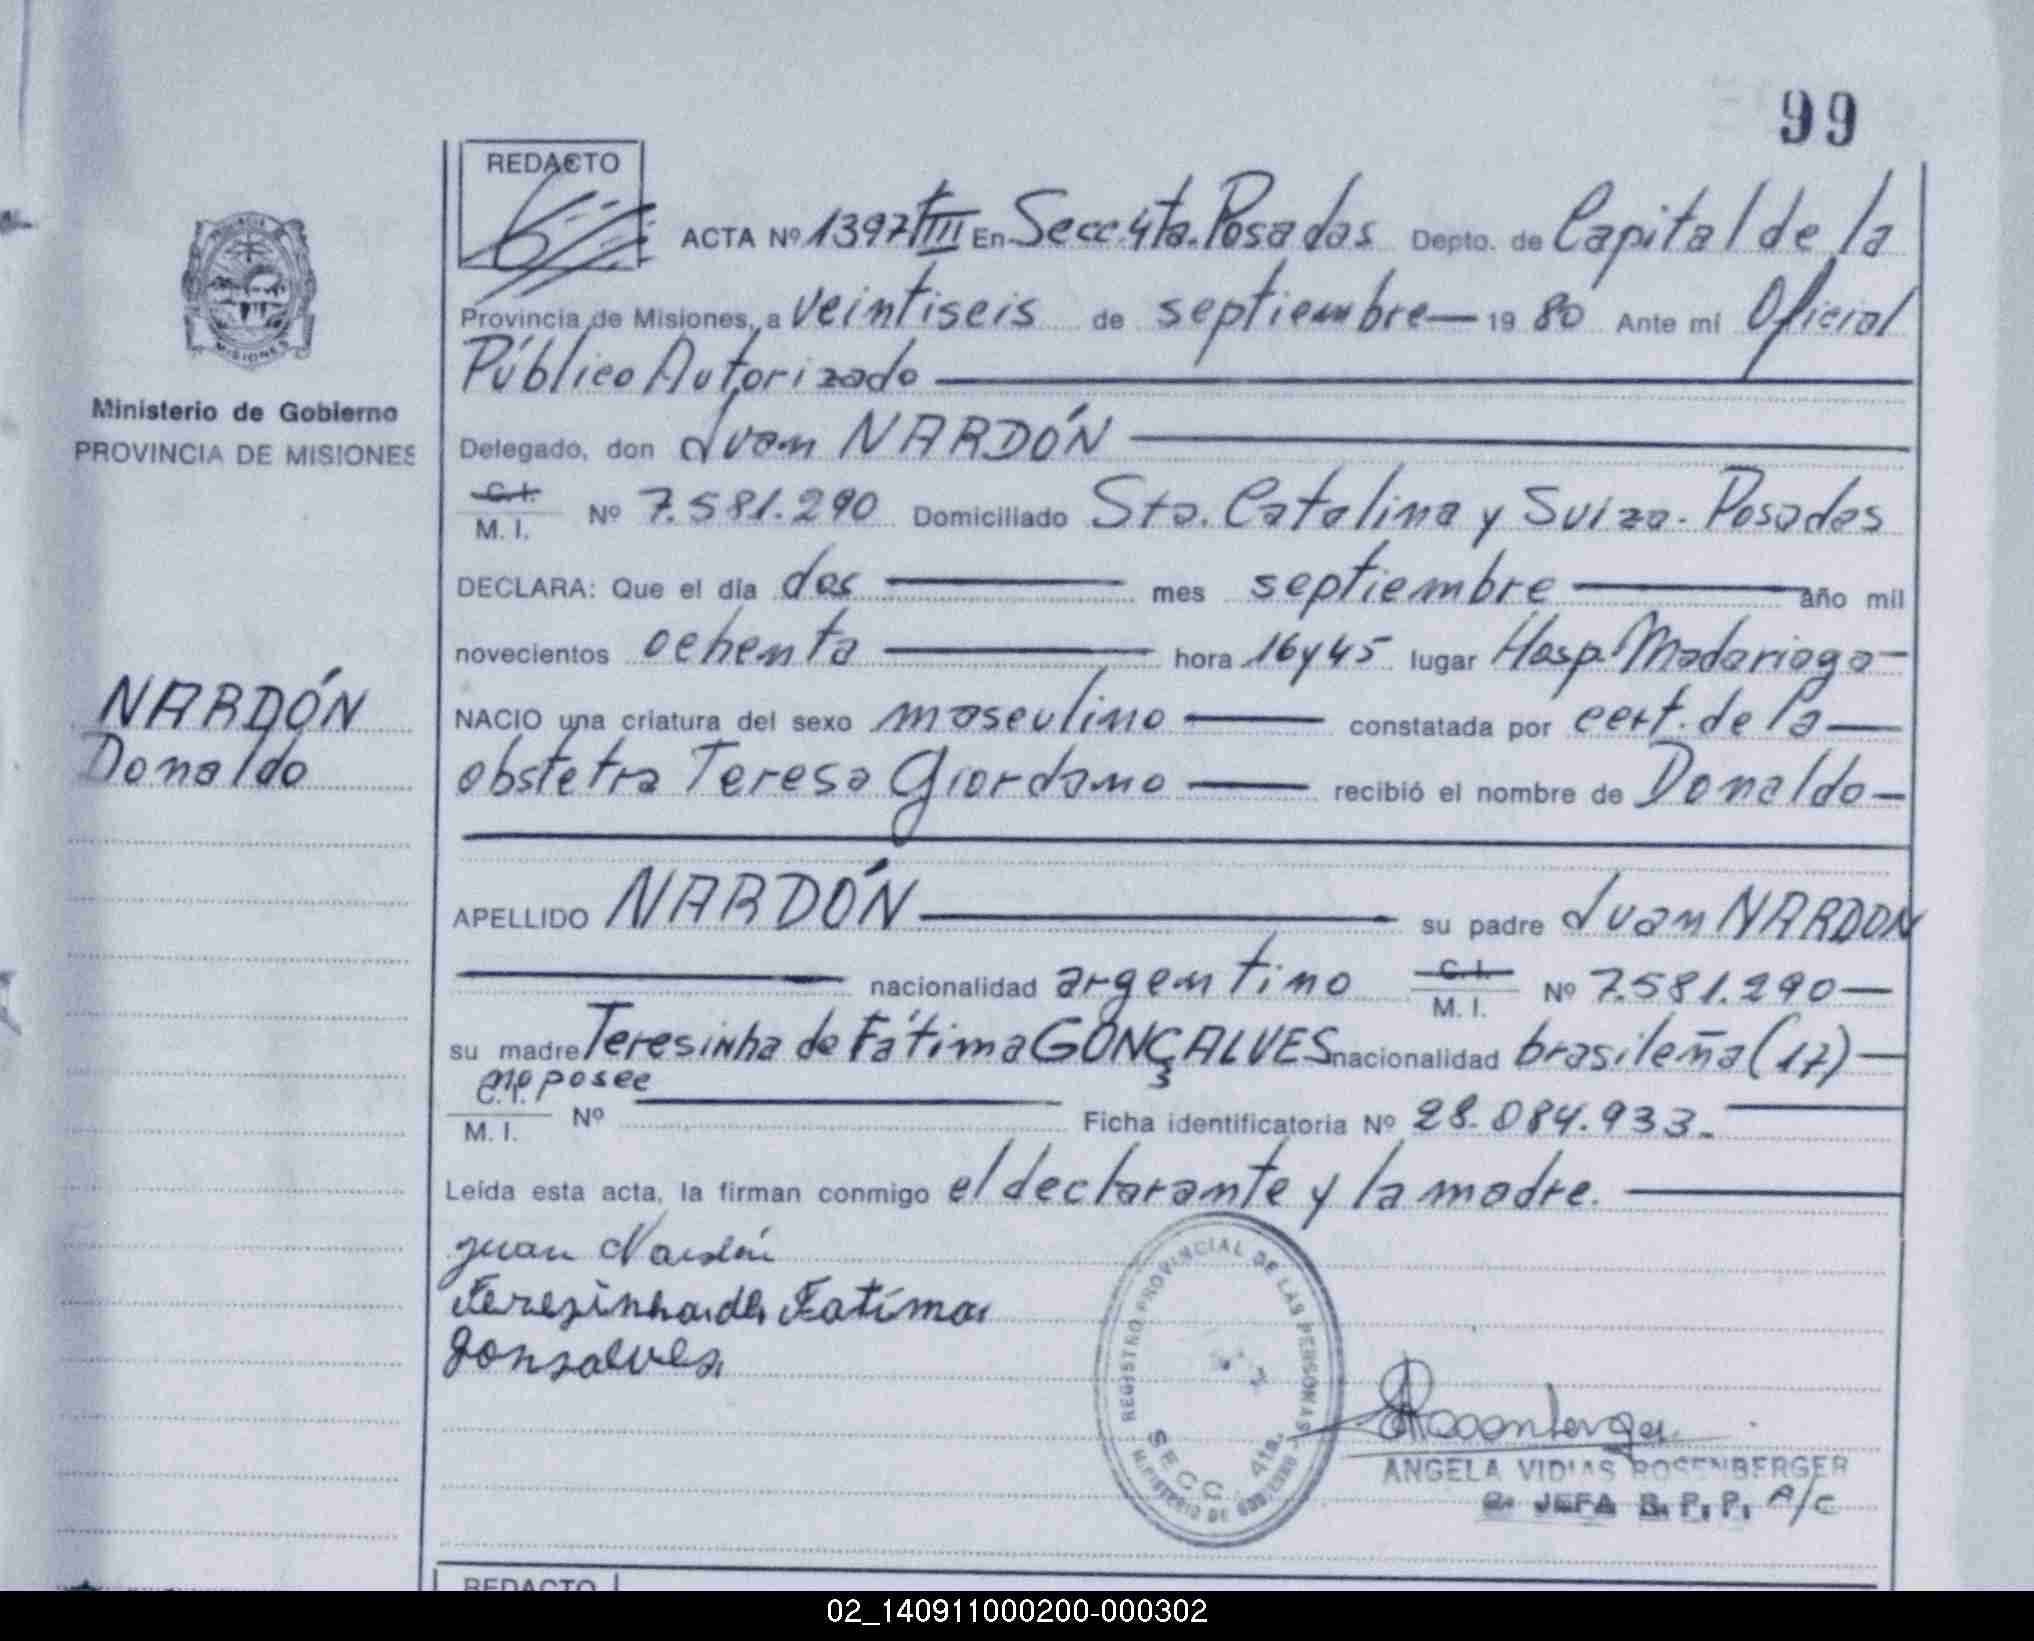 99
REDACTO
ACTA Nº 1397 TIII En Secc. 4ta. Posadas Depto. de Capital de la
Provincia de Misiones, a veintiseis de septiembre — 19 80 Ante mí Oficial
Público Autorizado
Delegado, don Juan NARDÓN
C. I.
M. I. Nº 7.581.290 Domiciliado Sta. Catalina y Suiza. Posadas
DECLARA: Que el día dos mes septiembre año mil
novecientos ochenta hora 16 y 45 lugar Hosp. Madariaga
NACIO una criatura del sexo masculino constatada por cert. de la
obstetra Teresa Giordano recibió el nombre de Donaldo
APELLIDO NARDÓN su padre Juan NARDON
nacionalidad argentino C. I. M. I. Nº 7.581.290
su madre Teresinha de Fátima GONÇALVES nacionalidad brasileña (17)
no posee
C. I.
M. I. Nº Ficha identificatoria Nº 28.084.933.
Leída esta acta, la firman conmigo el declarante y la madre.
Juan Nardón
Terezinha de Fatima
Gonsalves
REGISTRO PROVINCIAL DE LAS PERSONAS
SECC. 4ta.
MINISTERIO DE GOBIERNO
Rosenberger
ANGELA VIDIAS ROSENBERGER
2º JEFA R. P. P. A/C
MISIONES
Ministerio de Gobierno
PROVINCIA DE MISIONES
NARDÓN
Donaldo
REDACTO
02_140911000200-000302